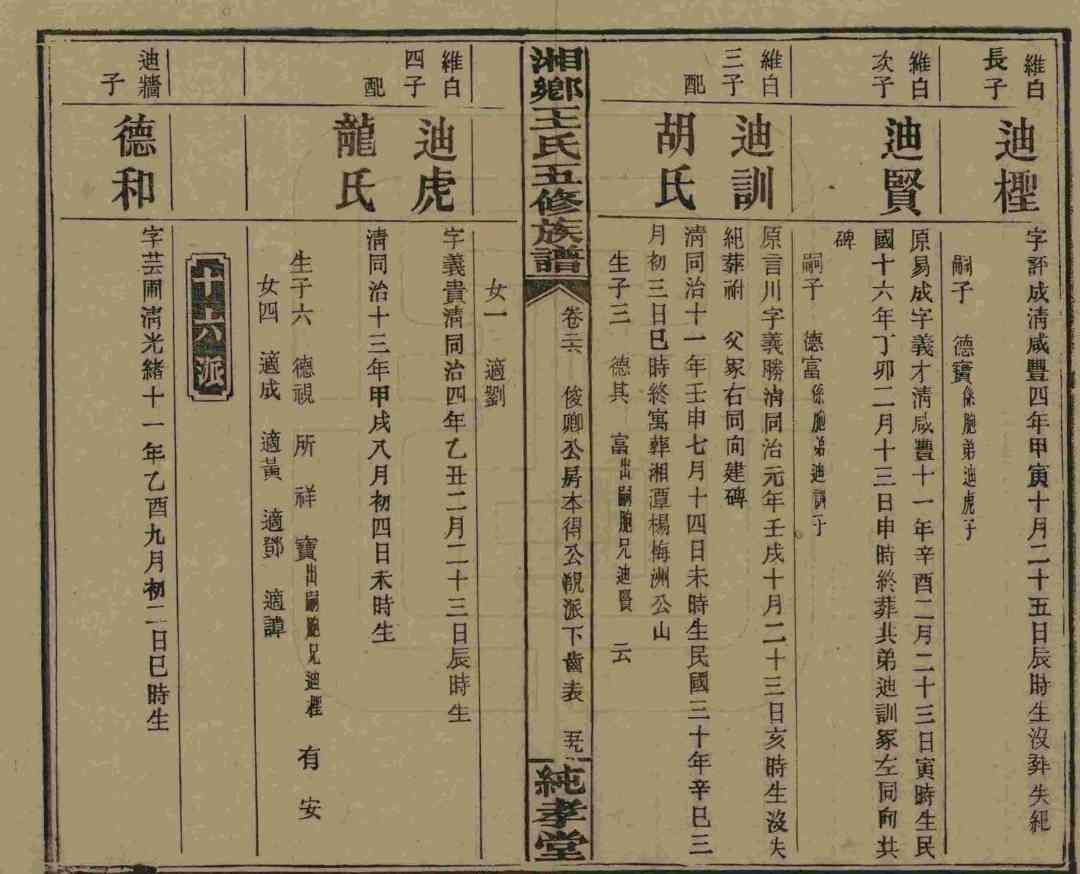 維白
長子
迪檉
字評成清咸豐四年甲寅十月二十五日辰時生沒葬失紀
嗣子 德寶係胞弟迪虎子
維白
次子
迪賢
原易成字義才清咸豐十一年辛酉二月二十三日寅時生民
國十六年丁卯二月十三日申時終葬共弟迪訓冢左同向共
碑
嗣子 德富係胞弟迪訓子
維白
三子
迪訓
原言川字義勝清同治元年壬戌十月二十三日亥時生沒失
紀葬祔 父冢右同向建碑
配
胡氏
清同治十一年壬申七月十四日未時生民國三十年辛巳三
月初三日巳時終寓葬湘潭楊梅洲公山
生子三 德其 富出嗣胞兄迪賢 云
湘鄉王氏五修族譜
卷三六 俊卿公房本得公覬派下齒表 五九
純孝堂
女一 適劉
維白
四子
迪虎
字義貴清同治四年乙丑二月二十三日辰時生
配
龍氏
清同治十三年甲戌八月初四日未時生
生子六 德視 所 祥 寶出嗣胞兄迪檉 有 安
女四 適成 適黃 適鄧 適譚
十六派
迪牆
子
德和
字芸圃清光緒十一年乙酉九月初二日巳時生